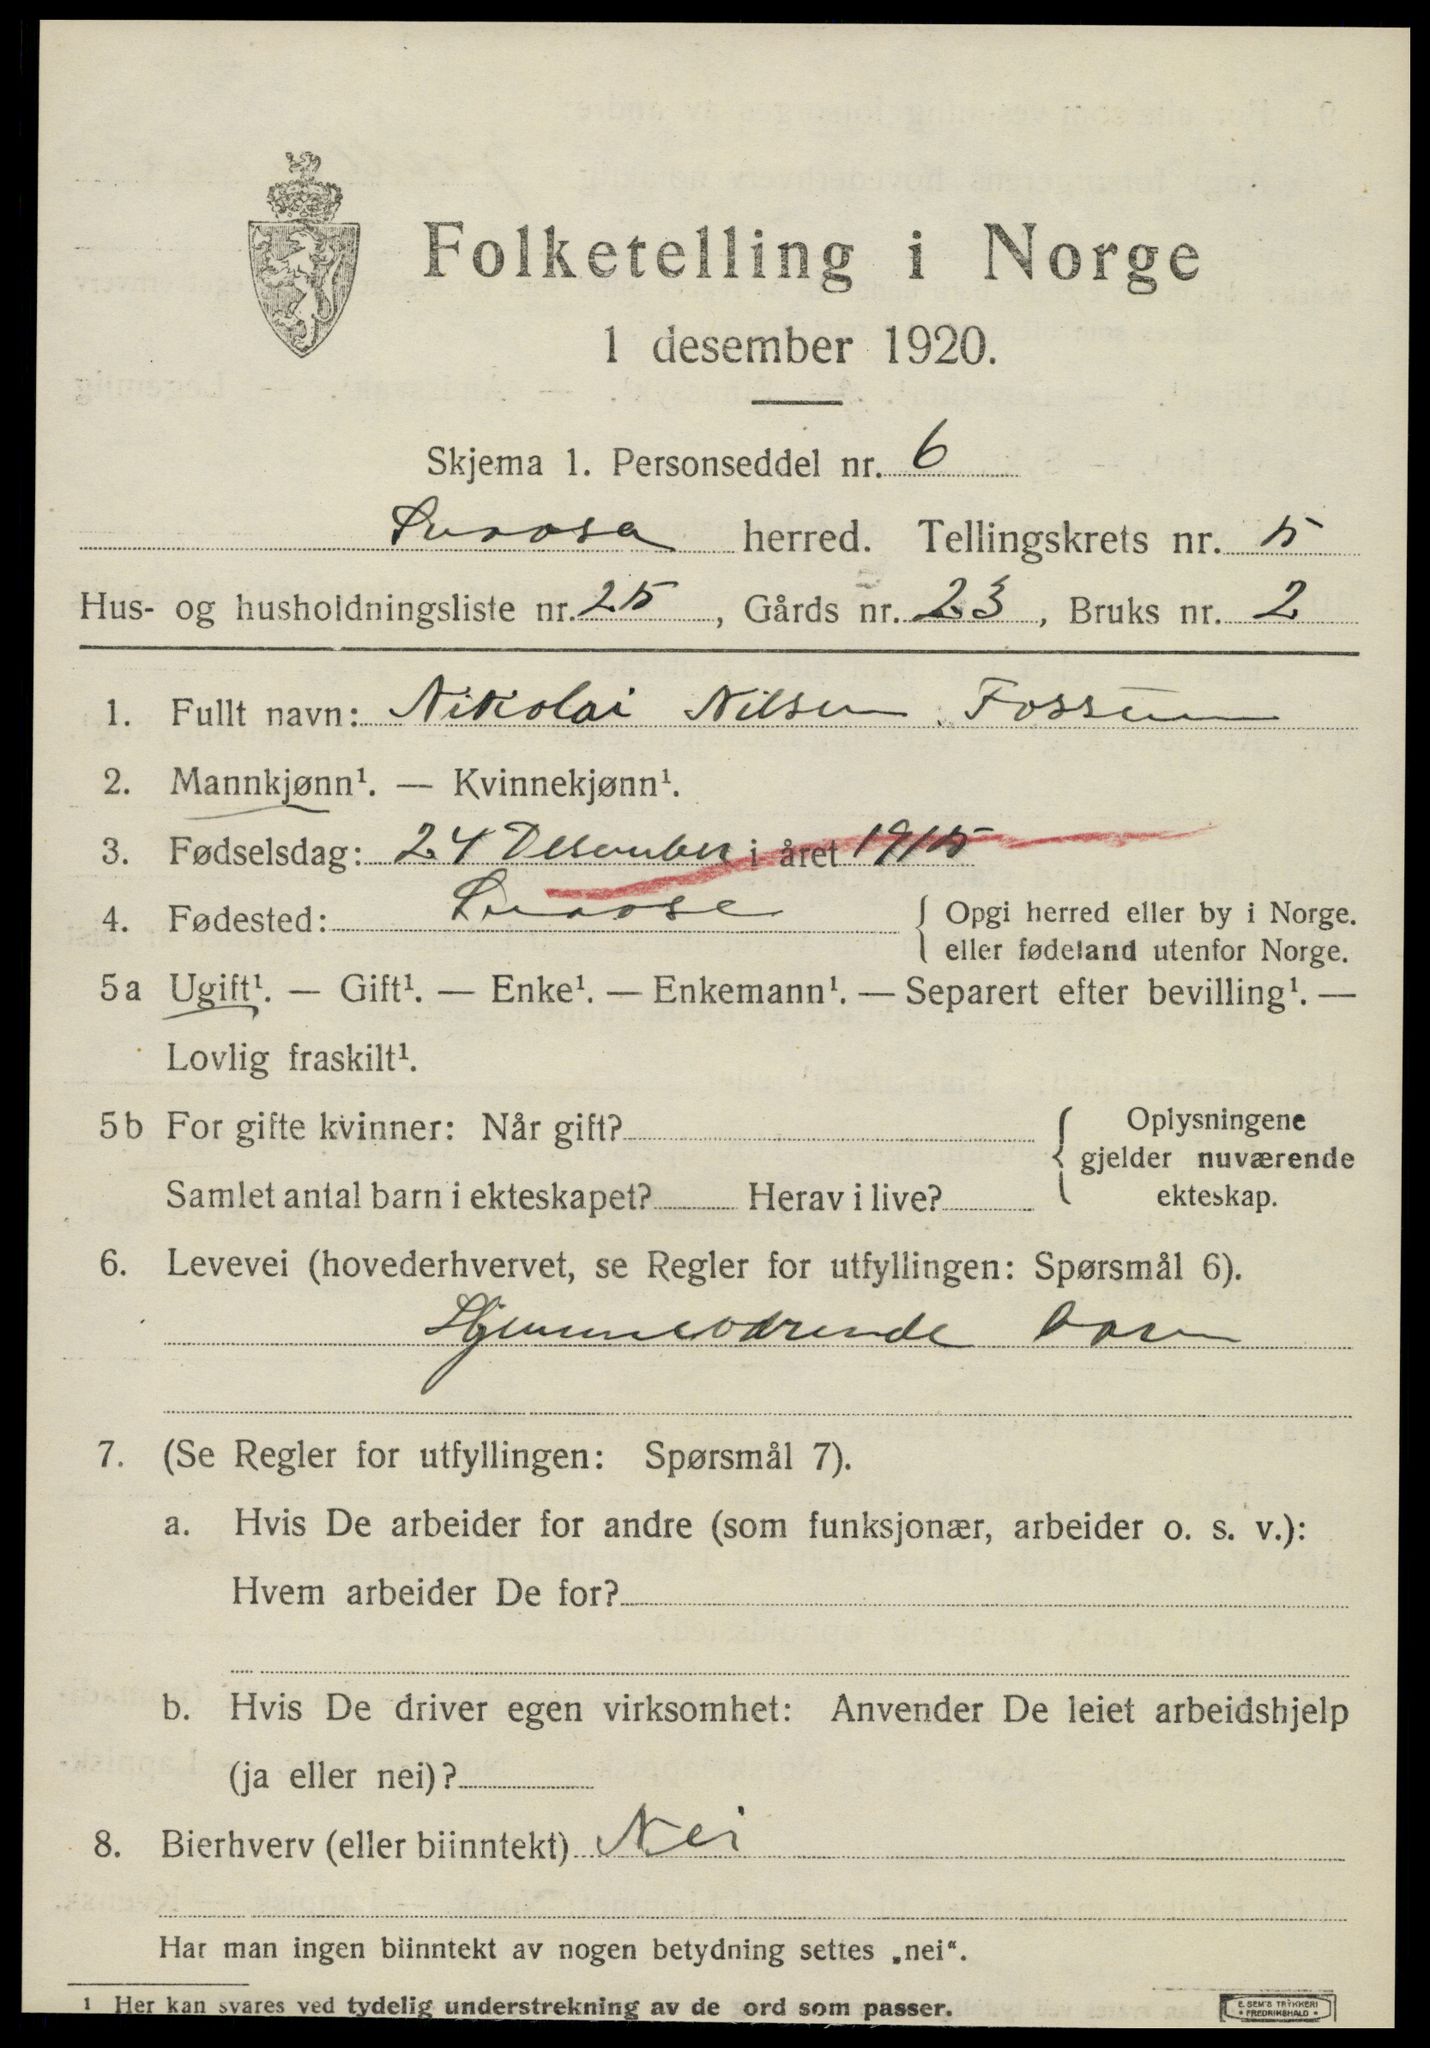 Folketelling i Norge
1 desember 1920.
Skjema 1. Personseddel nr. 6
Snaasa herred. Tellingskrets nr. 5
Hus- og husholdningsliste nr. 25, Gårds nr. 23, Bruks nr. 2
1. Fullt navn: Nikolai Nilsen Fossum
2. Mannkjønn¹. — Kvinnekjønn¹.
3. Fødselsdag: 24 Desember i året 1915
4. Fødested: Snaase { Opgi herred eller by i Norge.
eller fødeland utenfor Norge.
5a Ugift¹. — Gift¹. — Enke¹. — Enkemann¹. — Separert efter bevilling¹. —
Lovlig fraskilt¹.
5b For gifte kvinner: Når gift? { Oplysningene
gjelder nuværende
Samlet antal barn i ekteskapet? Herav i live? ekteskap.
6. Levevei (hovederhvervet, se Regler for utfyllingen: Spørsmål 6).
Hjemmeværende barn
7. (Se Regler for utfyllingen: Spørsmål 7).
a. Hvis De arbeider for andre (som funksjonær, arbeider o. s. v.):
Hvem arbeider De for?
b. Hvis De driver egen virksomhet: Anvender De leiet arbeidshjelp
(ja eller nei)?
8. Bierhverv (eller biinntekt) Nei
Har man ingen biinntekt av nogen betydning settes „nei“.
¹ Her kan svares ved tydelig understrekning av de ord som passer.
E. SEM'S TRYKKERI
* FREDRIKSHALD *